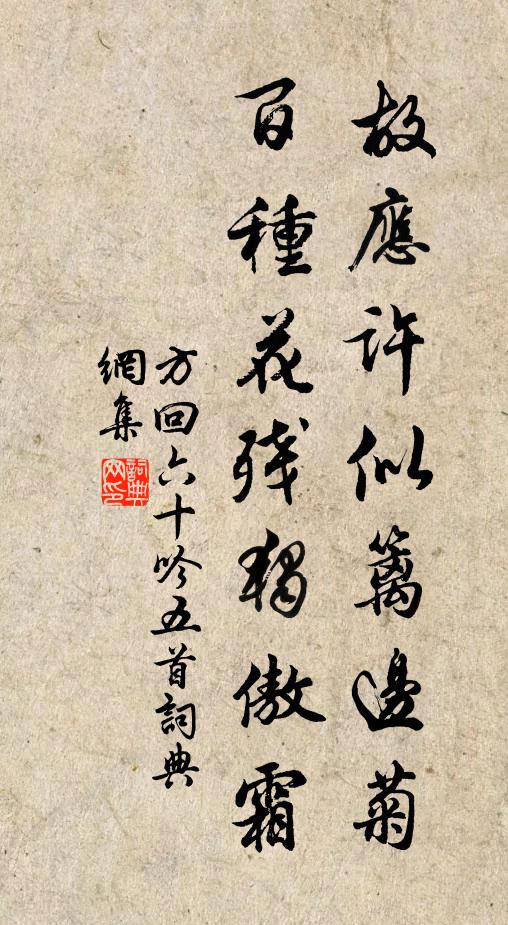 故應許似籬邊菊
百種花殘獨傲霜
方回六十吟五首詞典
網集
詞典
网印